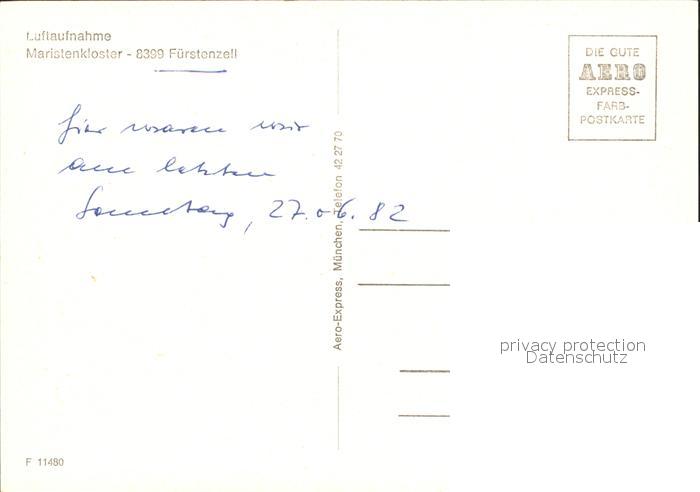 Luftaufnahme
Maristenkloster - 8399 Fürstenzell
DIE GUTE
AERO
EXPRESS-
FARB-
POSTKARTE
hier waren wir
am letzten
Sonntag, 27.06.82
Aero-Express, München, Telefon 42 27 70
privacy protection
Datenschutz
F 11480